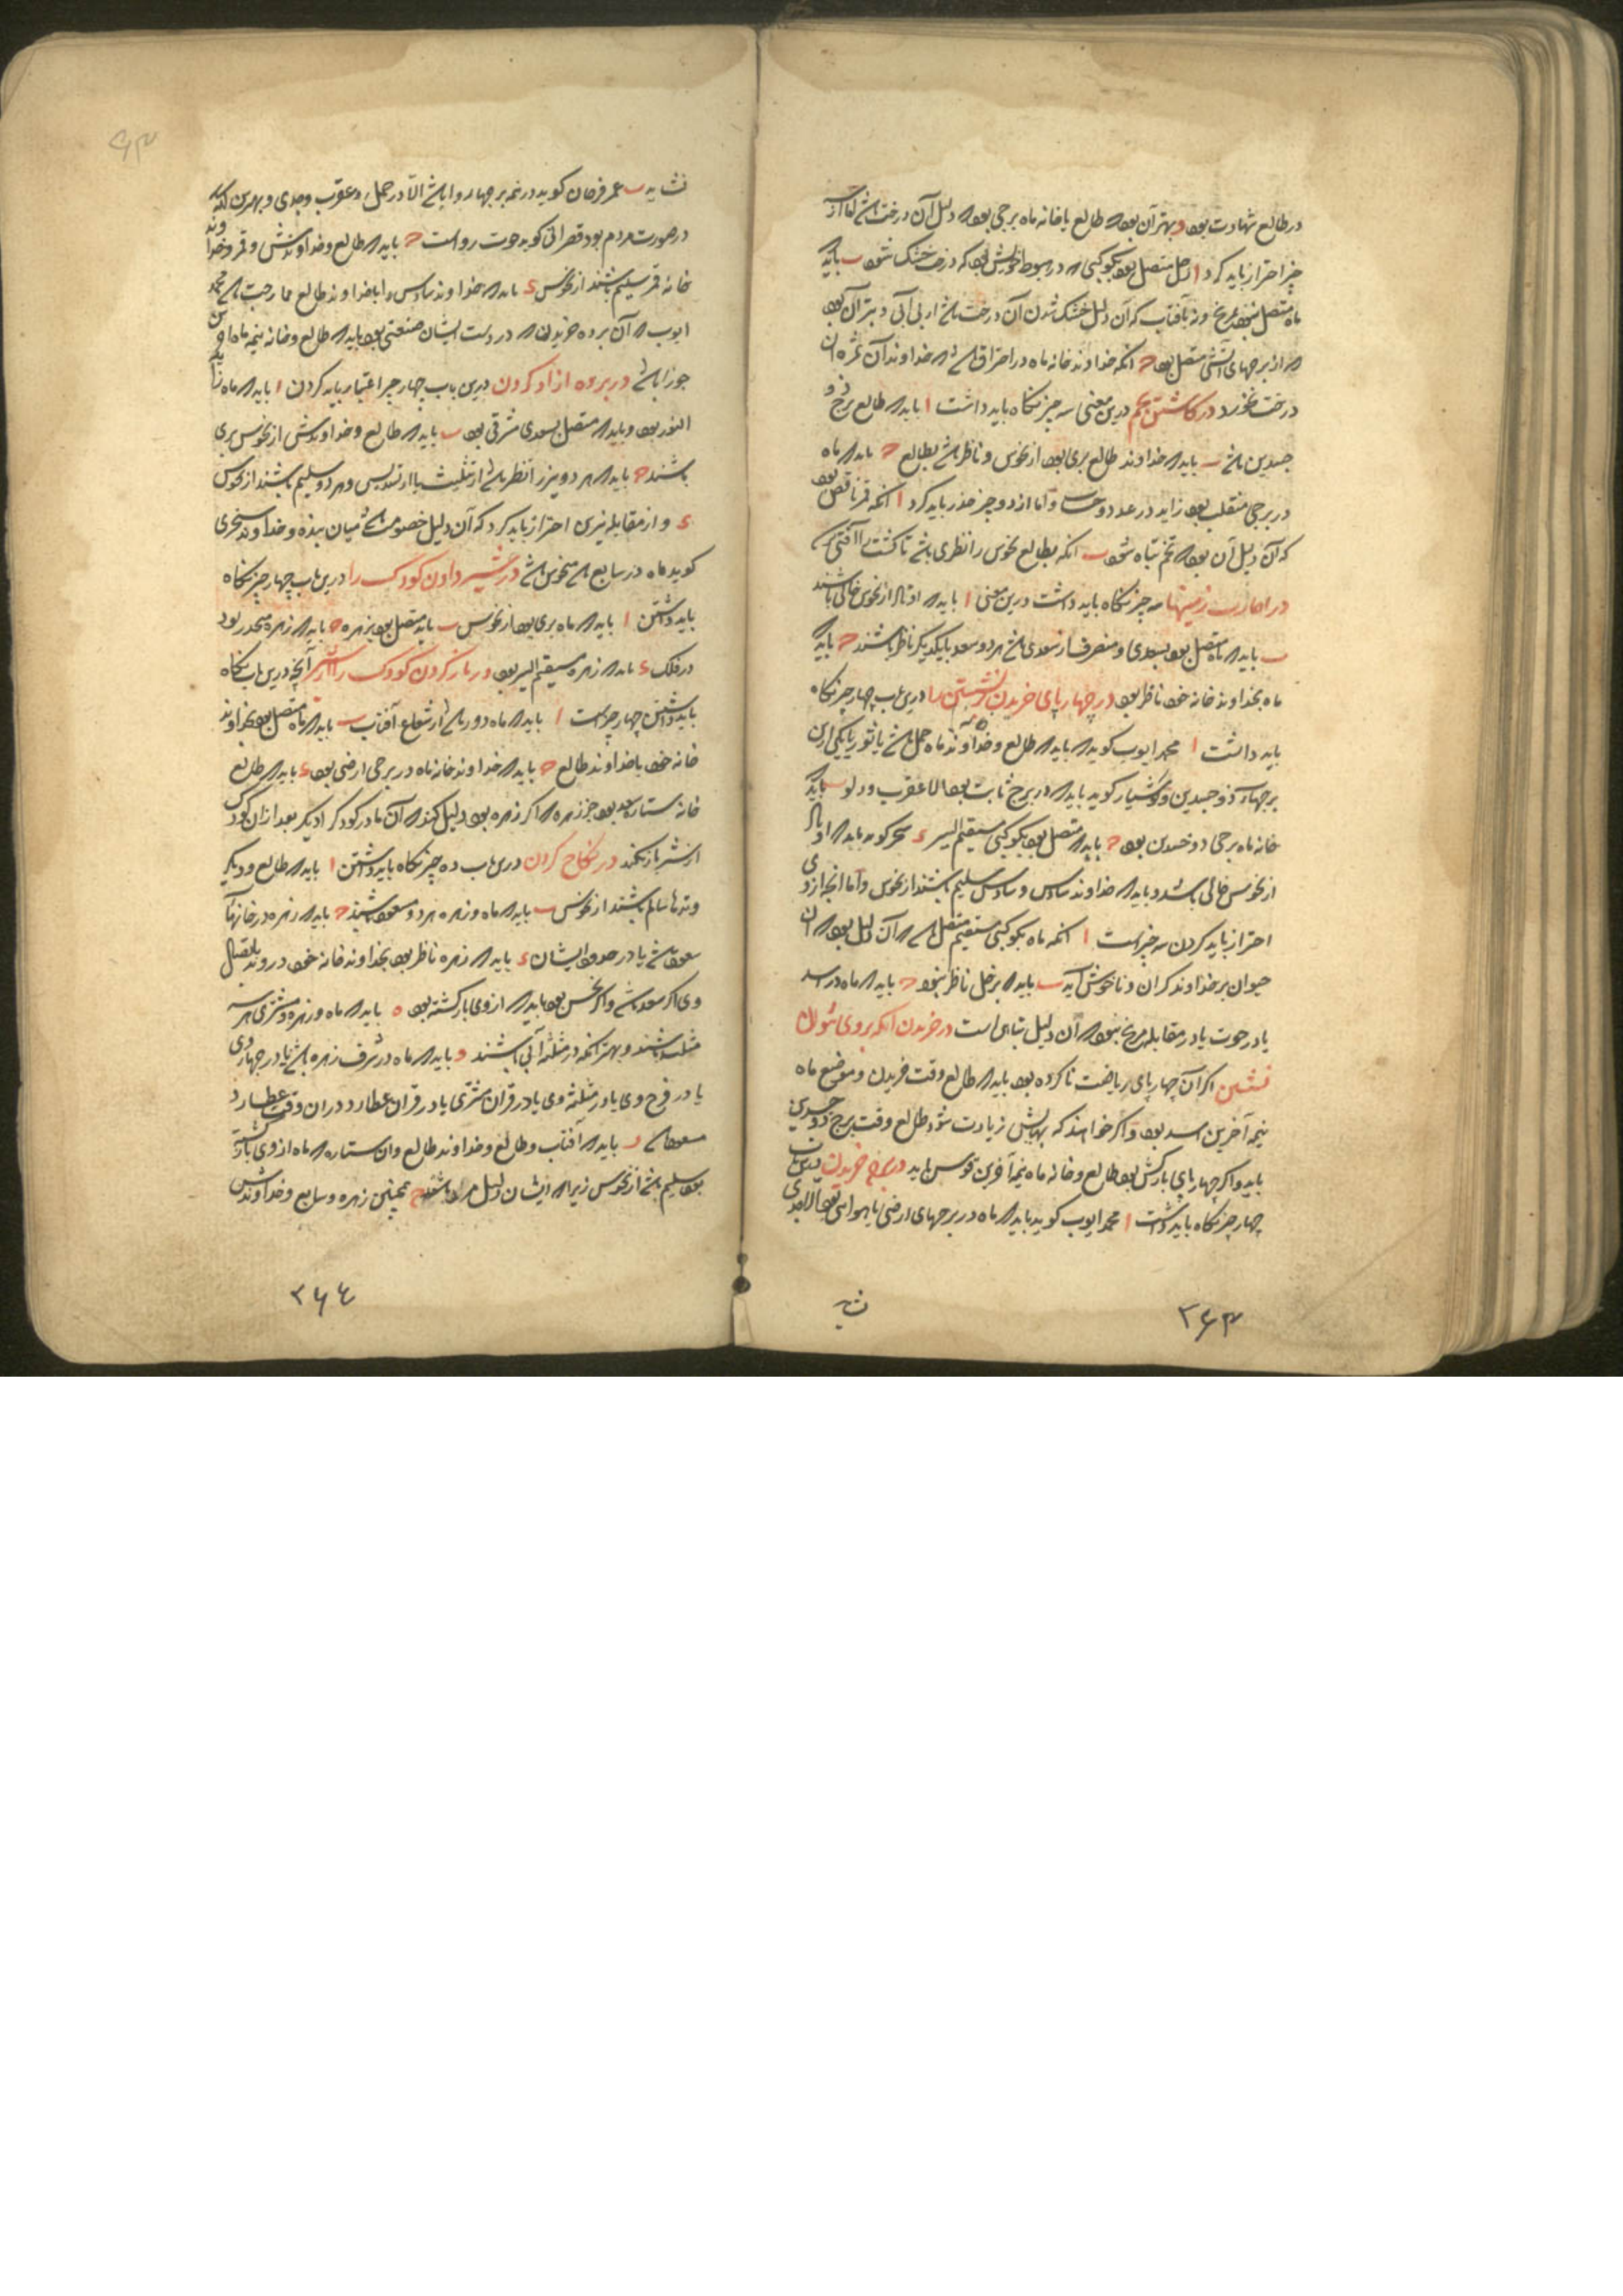 در طالع شهادت بود و بهتر آن بود که طالع یا خانه ماه برجی بود که دلیل آن درخت باشد اما از
چیز احتراز باید کرد ا زحل متصل بود بکوکبی که در هبوط خویش بود که درخت خشک شود ب باید که
ماه متصل نبود بمریخ و نه بآفتاب که آن دلیل خشک شدن آن درخت باشد از بی آبی و بتر آن بود
که از برجهای آتشی متصل بود ح آنکه خداوند خانه ماه در احتراق باشد که خداوند آن ثمره آن
درخت نخورد در کاشتن تخم درین معنی سه چیز نگاه باید داشت ا باید که طالع برج ذو
جسدین باشد ب باید که خداوند طالع بری بود از نحوس و ناظر باشد بطالع ح باید که ماه
در برجی منقلب بود زاید در عدد و حساب و اما از دو چیز حذر باید کرد ا آنکه قمر ناقص بود
که آن دلیل آن بود که تخم تباه شود ب آنکه بطالع نحوس را نظری باشد تا کشت را آفتی
در عمارت زمینها سه چیز نگاه باید داشت درین معنی ا باید که اوتاد از نحوس خالی باشند
ب باید که ماه متصل بود بسعدی و منصرف از سعدی باشد هر دو سعد بیکدیگر ناظر باشند ح باید که
ماه بخداوند خانه خود ناظر بود در چهارپای خریدن نشستن را درین باب چهار چیز نگاه
باید داشت ا محمد ایوب کوید که باید که طالع و خداوند ماه حمل باشد یا ثور یا یکی ازین
برجهاء ذو جسدین و کوشیار کوید باید که در برج ثابت بود الا عقرب و دلو ب باید که
خانه ماه برجی ذو جسدین بود ح باید که متصل بود بکوکبی مستقیم السیر ء سجزی کوید باید که اوتاد
از نحوس خالی باشد و باید که خداوند سادس و سادس سلیم باشند از نحوس و اما آنچه ازو
احتراز باید کردن سه چیز است ا آنکه ماه بکوکبی مستقیم متصل باشد که آن دلیل بود که آن
حیوان بر خداوند کران و ناخوش آید ب باید که بزحل ناظر نبود ح باید که ماه در اسد
یا در حوت یا در مقابله مریخ نبود که آن دلیل تباهی است در خریدن آنکه بر وی نتوان
نشستن اگر آن چهارپای ریاضت ناکرده بود باید که طالع وقت خریدن و موضع ماه
نیمه آخرین اسد بود و اگر خواهند که بهایش زیادت شود طالع وقت برج ذو جسدین
باید و اگر چهارپای بارکش بود طالع و خانه ماه نیمه آخرین قوس باید در برده خریدن درین باب
چهار چیز نگاه باید داشت ا محمد ایوب کوید باید که ماه در برجهای ارضی یا هوائی بود الا جدی
شاید
۲۶۳
نشاید ب عمر فرخان کوید در همه برجها روا باشد الا در حمل و عقرب و جدی و بهترین آنکه
در صورت مردم بود قصرانی کوید حوت رواست ح باید که طالع و خداوندش و قمر و خداوند
خانه قمر سلیم باشند از نحوس ء باید که خداوند سادس را با خداوند طالع ممازجت باشد محمد
ایوب که آن برده خریدن که در دست ایشان صنعتی بود باید که طالع و خانه نیمه ماه
جوزا باشد در برده آزاد کردن درین باب چهار چیز اعتبار باید کردن ا باید که ماه زاید
النور بود و باید که متصل بسعدی شرقی بود ب باید که طالع و خداوندش از نحوس بری
باشند ح باید که هر دو نیر را نظر باشد از تثلیث یا از تسدیس و هر دو سلیم باشند از نحوس
ء و از مقابله نیرین احتراز باید کرد که آن دلیل خصومت باشد میان بنده و خداوند سجزی
کوید ماه در سابع باشد منحوس باشد در شیر دادن کودک را درین باب چهار چیز نگاه
باید داشتن ا باید که ماه بری بود از نحوس ب باید متصل بود بزهره ح باید که زهره منحدر بود
در فلک ء باید که زهره مستقیم السیر بود در باز کردن کودک را از شیر آنچه درین باب نگاه
باید داشتن چهار چیز است ا باید که ماه دور باشد از شعاع آفتاب ب باید که ماه متصل بود بخداوند
خانه خود یا خداوند طالع ح باید که خداوند خانه ماه در برجی ارضی بود ء باید که طالع
خانه ستاره سعد بود جز زهره که اگر زهره بود دلیل کند که آن مادر کودک دیگر بعد از آن کودک
از شیر باز نکند در نکاح کردن درین باب ده چیز نگاه باید داشتن ا باید که طالع و دیگر
وتدها سالم باشند از نحوس ب باید که ماه و زهره هر دو مسعود باشند ح باید که زهره در خانهای
سعود باشد یا در حدود ایشان ء باید که زهره ناظر بود بخداوند خانه خود در وتد
وی اگر سعد باشد و اگر نحس بود باید که از وی بازگشته بود ه باید که ماه و زهره و مشتری هر سه
مثلثه باشند و بهتر آنکه در مثلثه آبی باشند و باید که ماه در شرف زهره باشد یا در چهارم وی
یا در فرح وی یا در مثلثه وی یا در قران مشتری یا در قران عطارد در آن وقت عطارد
مسعود باشد ر باید که آفتاب و طالع و خداوند طالع و آن ستاره که ماه از وی بازگشته
بود سلیم باشد از نحوس زیرا که ایشان دلیل مرد باشند ح همچنین زهره و سابع و خداوندش
۲۶۴